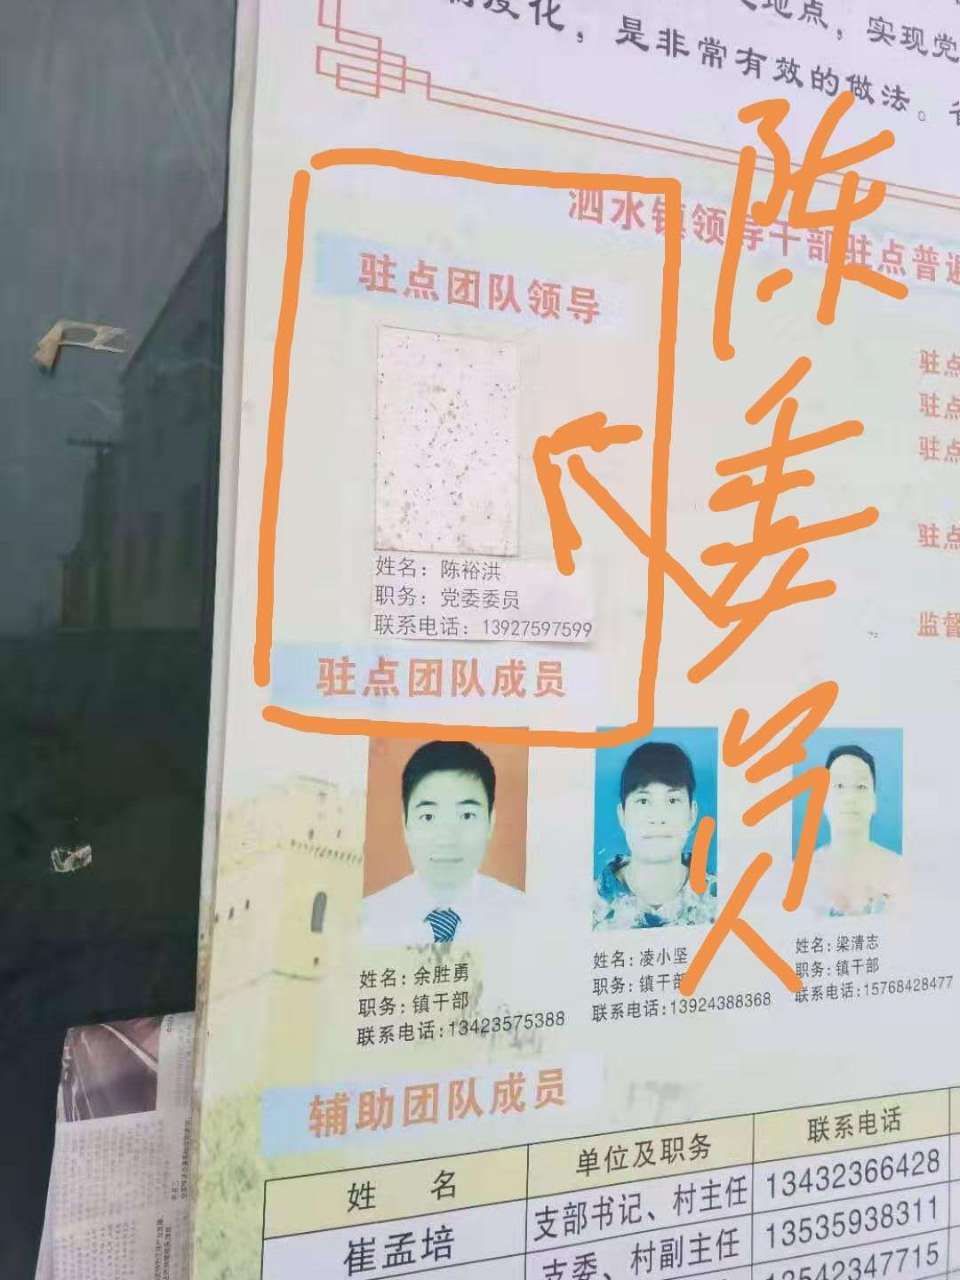 度化，是非常有效的做法。
地点，实现党
泗水镇领导干部驻点普遍
驻点团队领导
陈委员
驻点
驻点
驻点
驻点
监督
姓名：陈裕洪
职务：党委委员
联系电话：13927597599
驻点团队成员
姓名：余胜勇
职务：镇干部
联系电话：13423575388
姓名：凌小坚
职务：镇干部
联系电话：13924388368
姓名：梁清志
职务：镇干部
联系电话：15768428477
辅助团队成员
姓 名 单位及职务 联系电话
崔孟培 支部书记、村主任 13432366428
支委、村副主任 13535938311
13542347715